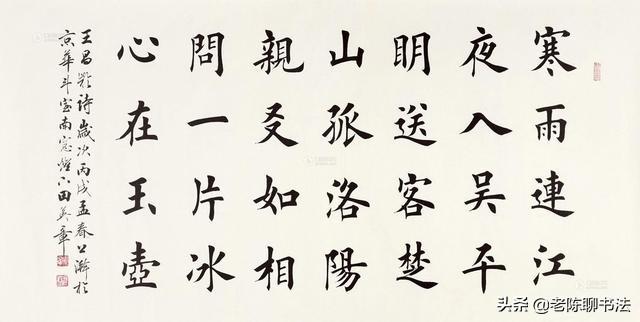 寒雨連江
夜入吴平
明送客楚
山孤洛陽
親友如相
問一片冰
心在玉壺
王昌齡詩歲次丙戌孟春上澣於
京華斗室南窗燈下田英章
头条 @老陈聊书法